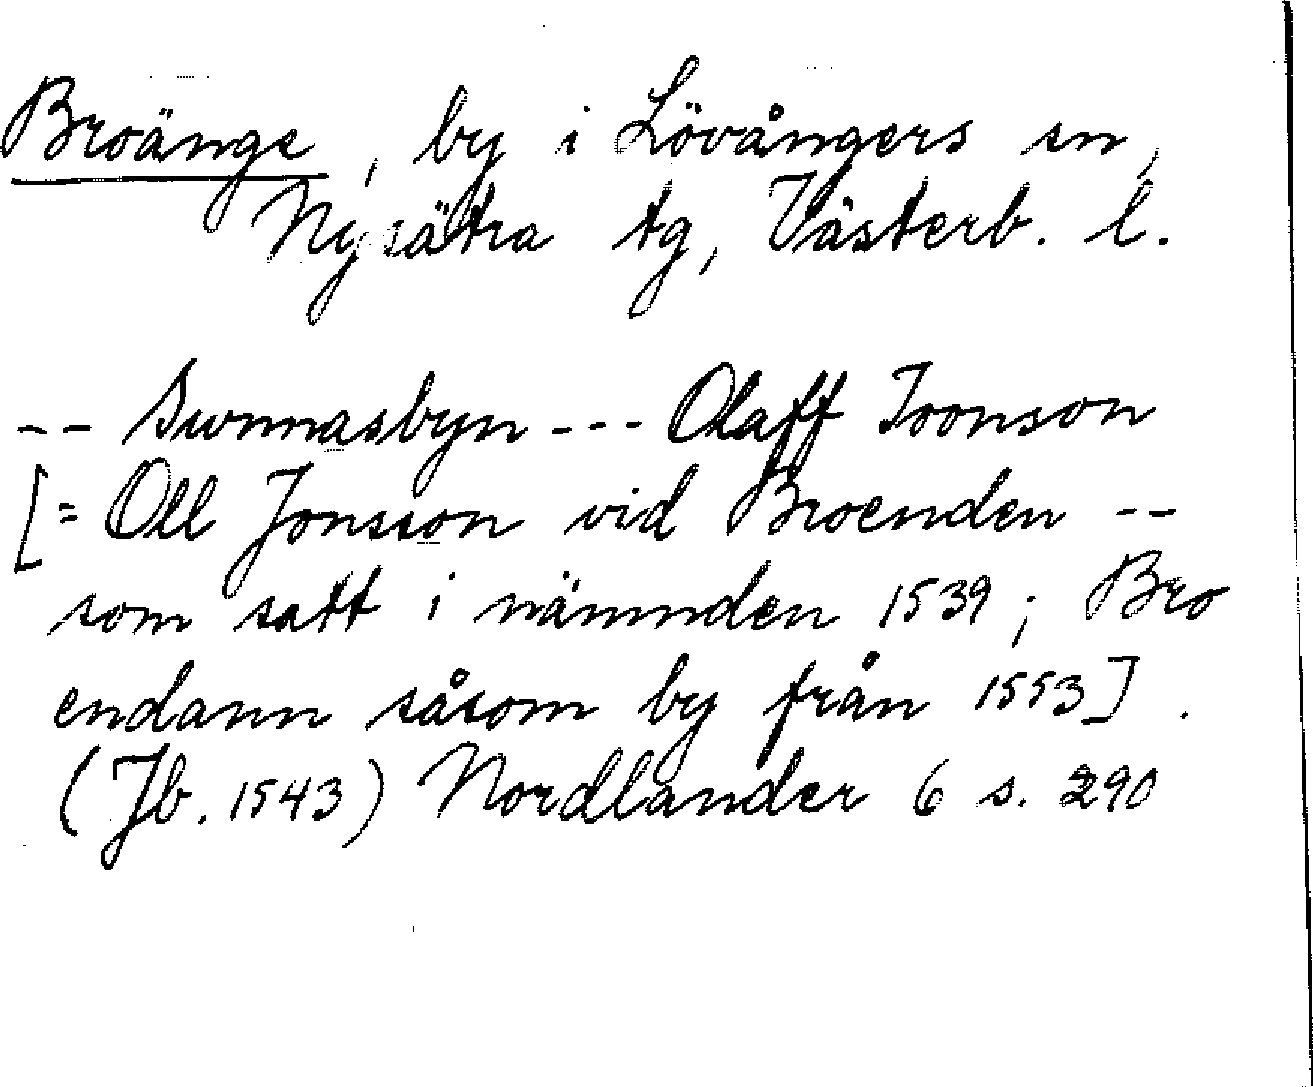 Broänge, by i Lövångers sn,
Nysätra tg, Västerb. l.
-- Swnnasbyn --- Olaff Joonson
[= Oll Jonsson vid Broenden --
som satt i nämnden 1539; Bro
endann såsom by från 1553].
(Jb. 1543) Nordlander 6 s. 290